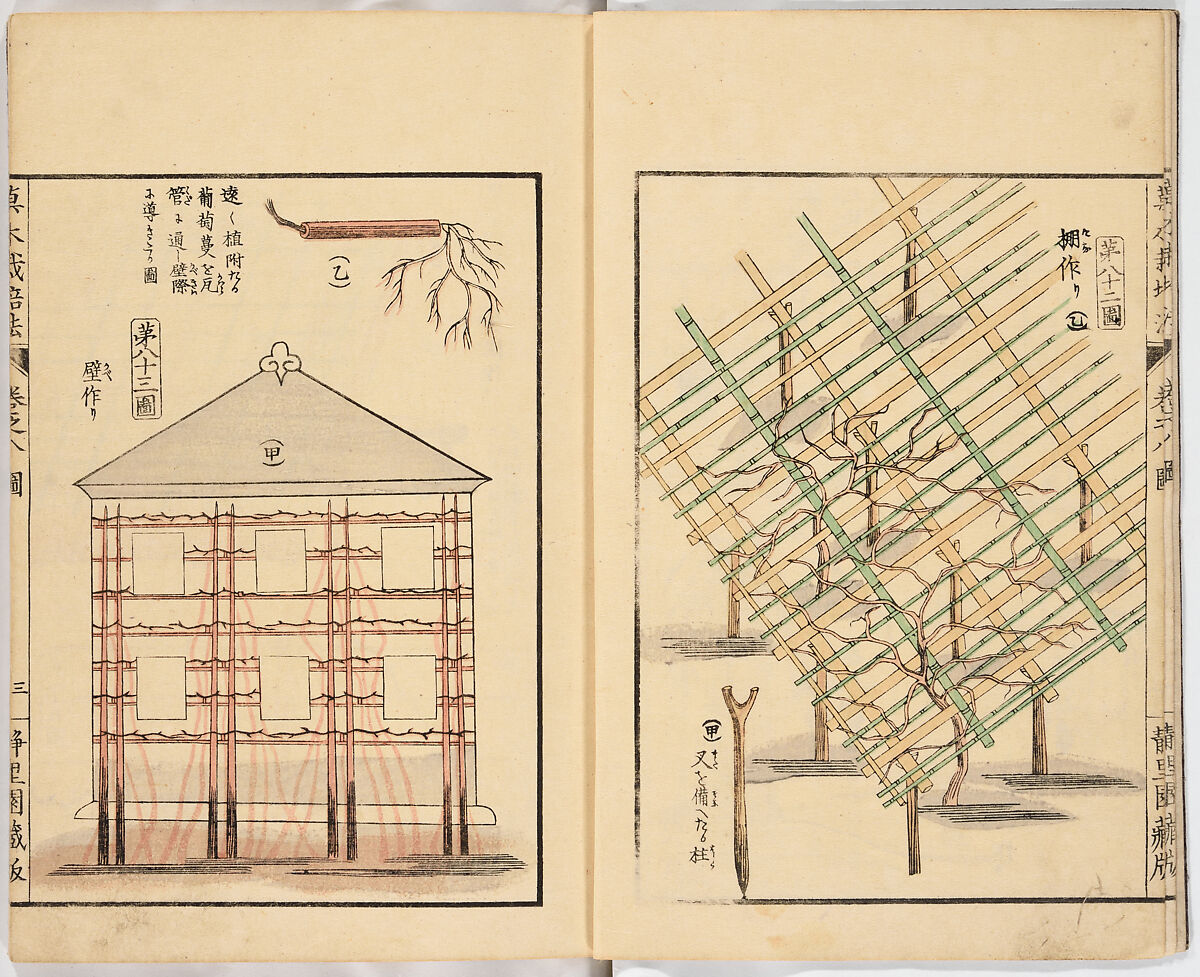 第八十二圖
棚作り
(乙)
(甲)
叉を備へたる柱
草木栽培法
卷之八 圖
静里園藏版
(乙)
遠く植附たる
葡萄蔓を瓦
管に通し壁際
に導きたる圖
第八十三圖
壁作り
(甲)
草木栽培法
卷之八 圖
三
静里園藏版